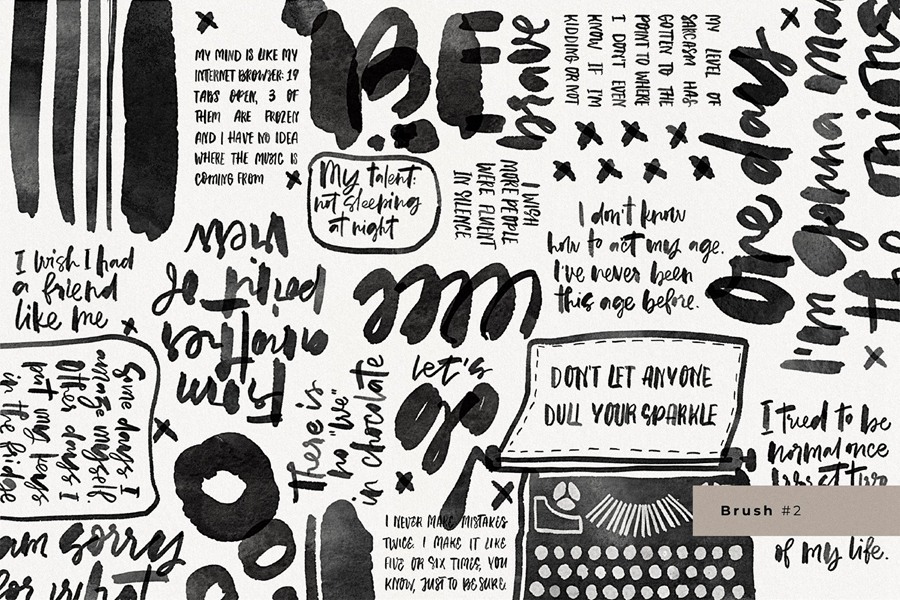 MY MIND IS LIKE MY
INTERNET BROWSER: 19
TABS OPEN, 3 OF
THEM ARE FROZEN
AND I HAVE NO IDEA
WHERE THE MUSIC IS
COMING FROM
BE
brave
MY LEVEL OF
SARCASM HAS
GOTTEN TO THE
POINT TO WHERE
I DON'T EVEN
KNOW IF I'M
KIDDING OR NOT
One day
I'm gonna
My talent:
not sleeping
at night
I WISH
MORE PEOPLE
WERE FLUENT
IN SILENCE
I don't know
how to act my age.
I've never been
this age before.
I wish I had
a friend
like me
From
another
period of
Some days I
amaze myself.
Other days I
put my keys
in the fridge
There is
no "we"
in chocolate
let's
go
DON'T LET ANYONE
DULL YOUR SPARKLE
I tried to be
normal once
of my life.
I NEVER MAKE MISTAKES
TWICE. I MAKE IT LIKE
FIVE OR SIX TIMES, YOU
KNOW, JUST TO BE SURE.
am sorry
for what
Brush #2